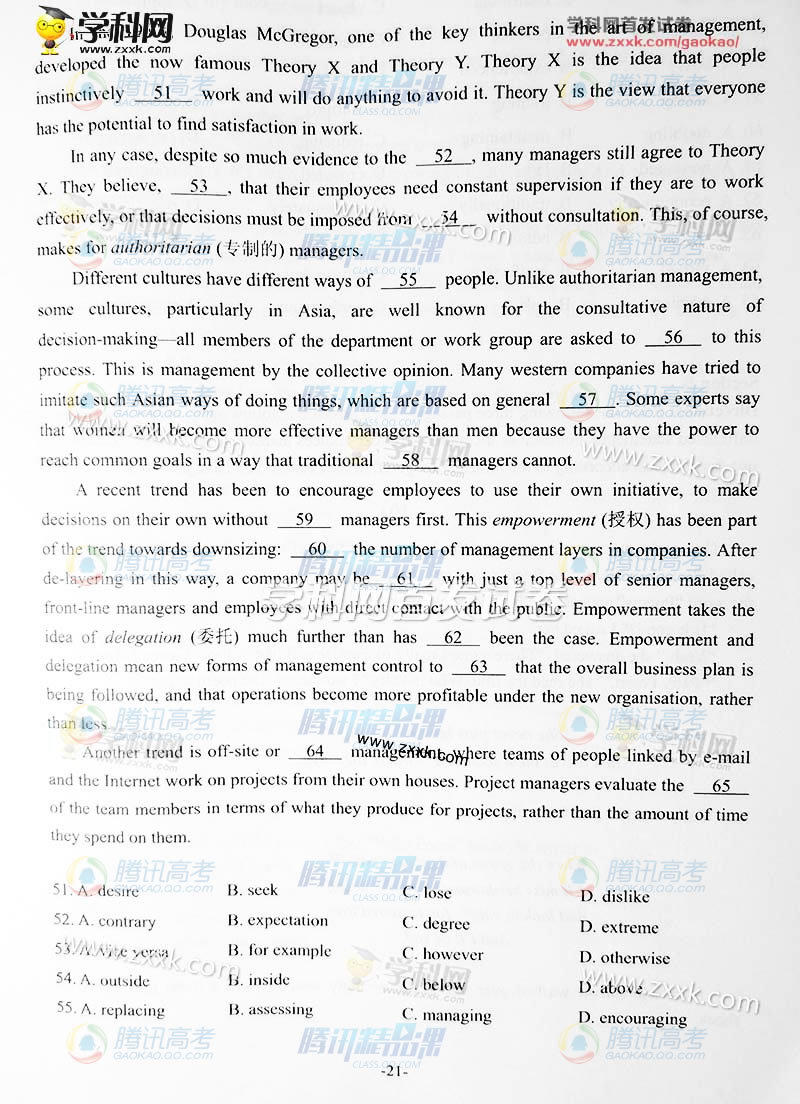 学科网
www.zxxk.com
学科网首发试卷
www.zxxk.com/gaokao/
Douglas McGregor, one of the key thinkers in the art of management,
developed the now famous Theory X and Theory Y. Theory X is the idea that people
instinctively 51 work and will do anything to avoid it. Theory Y is the view that everyone
has the potential to find satisfaction in work.
In any case, despite so much evidence to the 52 , many managers still agree to Theory
X. They believe, 53 , that their employees need constant supervision if they are to work
effectively, or that decisions must be imposed from 54 without consultation. This, of course,
makes for authoritarian (专制的) managers.
Different cultures have different ways of 55 people. Unlike authoritarian management,
some cultures, particularly in Asia, are well known for the consultative nature of
decision-making—all members of the department or work group are asked to 56 to this
process. This is management by the collective opinion. Many western companies have tried to
imitate such Asian ways of doing things, which are based on general 57 . Some experts say
that women will become more effective managers than men because they have the power to
reach common goals in a way that traditional 58 managers cannot.
A recent trend has been to encourage employees to use their own initiative, to make
decisions on their own without 59 managers first. This empowerment (授权) has been part
of the trend towards downsizing: 60 the number of management layers in companies. After
de-layering in this way, a company may be 61 with just a top level of senior managers,
front-line managers and employees with direct contact with the public. Empowerment takes the
idea of delegation (委托) much further than has 62 been the case. Empowerment and
delegation mean new forms of management control to 63 that the overall business plan is
being followed, and that operations become more profitable under the new organisation, rather
than less.
Another trend is off-site or 64 management, where teams of people linked by e-mail
and the Internet work on projects from their own houses. Project managers evaluate the 65
of the team members in terms of what they produce for projects, rather than the amount of time
they spend on them.
51. A. desire B. seek C. lose D. dislike
52. A. contrary B. expectation C. degree D. extreme
53. A. vice versa B. for example C. however D. otherwise
54. A. outside B. inside C. below D. above
55. A. replacing B. assessing C. managing D. encouraging
-21-